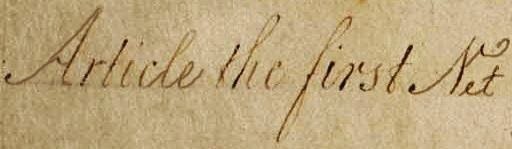 Article the first Net